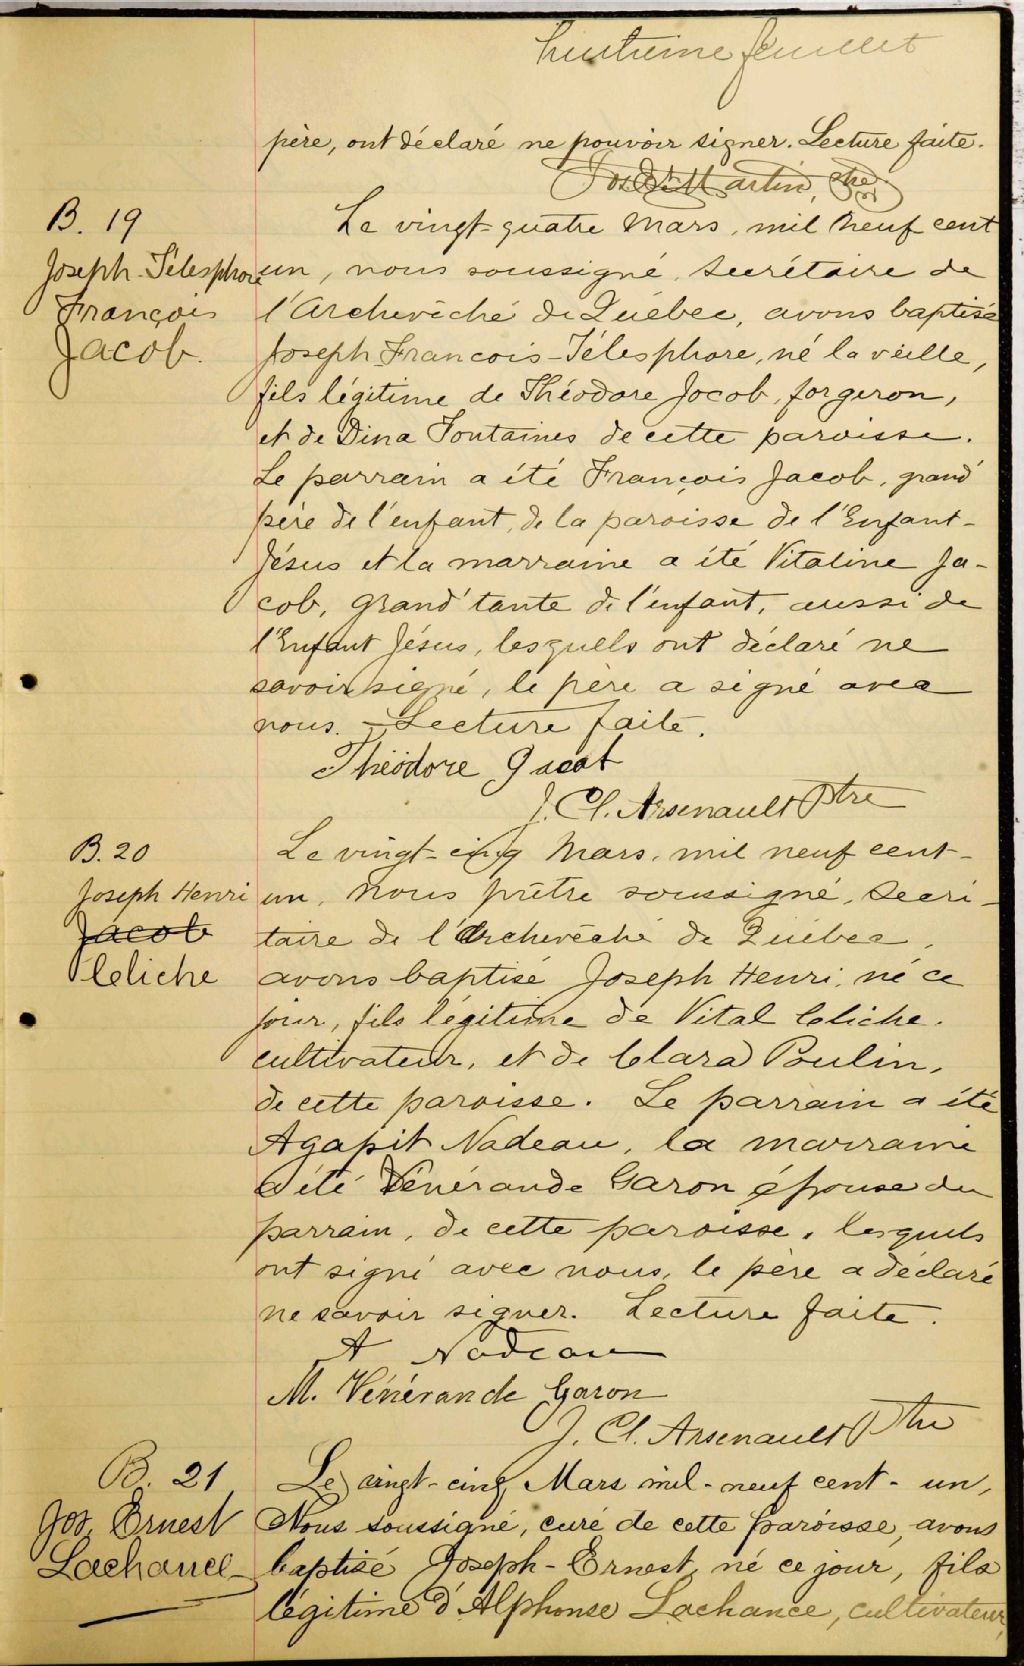 huitième feuillet
père, ont déclaré ne pouvoir signer. Lecture faite.
Martin, Ptre
B. 19
Joseph-Télesphore
François
Jacob.
Le vingt-quatre Mars, mil neuf cent
un, nous soussigné, Secrétaire de
l'Archevêché de Québec, avons baptisé
Joseph-Francois-Télesphore, né la veille,
fils légitime de Théodore Jacob, forgeron,
et de Dina Fontaines de cette paroisse.
Le parrain a été François Jacob, grand'
père de l'enfant, de la paroisse de l'Enfant-
Jésus et la marraine a été Vitaline Ja-
cob, grand'tante de l'enfant, aussi de
l'Enfant Jésus, lesquels ont déclaré ne
savoir signé, le père a signé avec
nous. - Lecture faite.
Théodore Jacob
J. Cl. Arsenault Ptre
B. 20
Joseph Henri
Jacob
Cliche
Le vingt-cinq Mars, mil neuf cent-
un, nous prêtre soussigné, Secré-
taire de l'Archevêché de Québec,
avons baptisé Joseph Henri, né ce
jour, fils légitime de Vital Cliche,
cultivateur, et de Clara Poulin,
de cette paroisse. Le parrain a été
Agapit Nadeau, la marraine
a été Vénérande Garon épouse du
parrain, de cette paroisse, lesquels
ont signé avec nous, le père a déclaré
ne savoir signer. Lecture faite.
A Nadeau
M. Vénérande Garon
J. Cl. Arsenault Ptre
B. 21
Jos. Ernest
Lachance
Le vingt-cinq Mars mil-neuf cent-un,
Nous soussigné, curé de cette paroisse, avons
baptisé Joseph-Ernest, né ce jour, fils
légitime d'Alphonse Lachance, cultivateur,